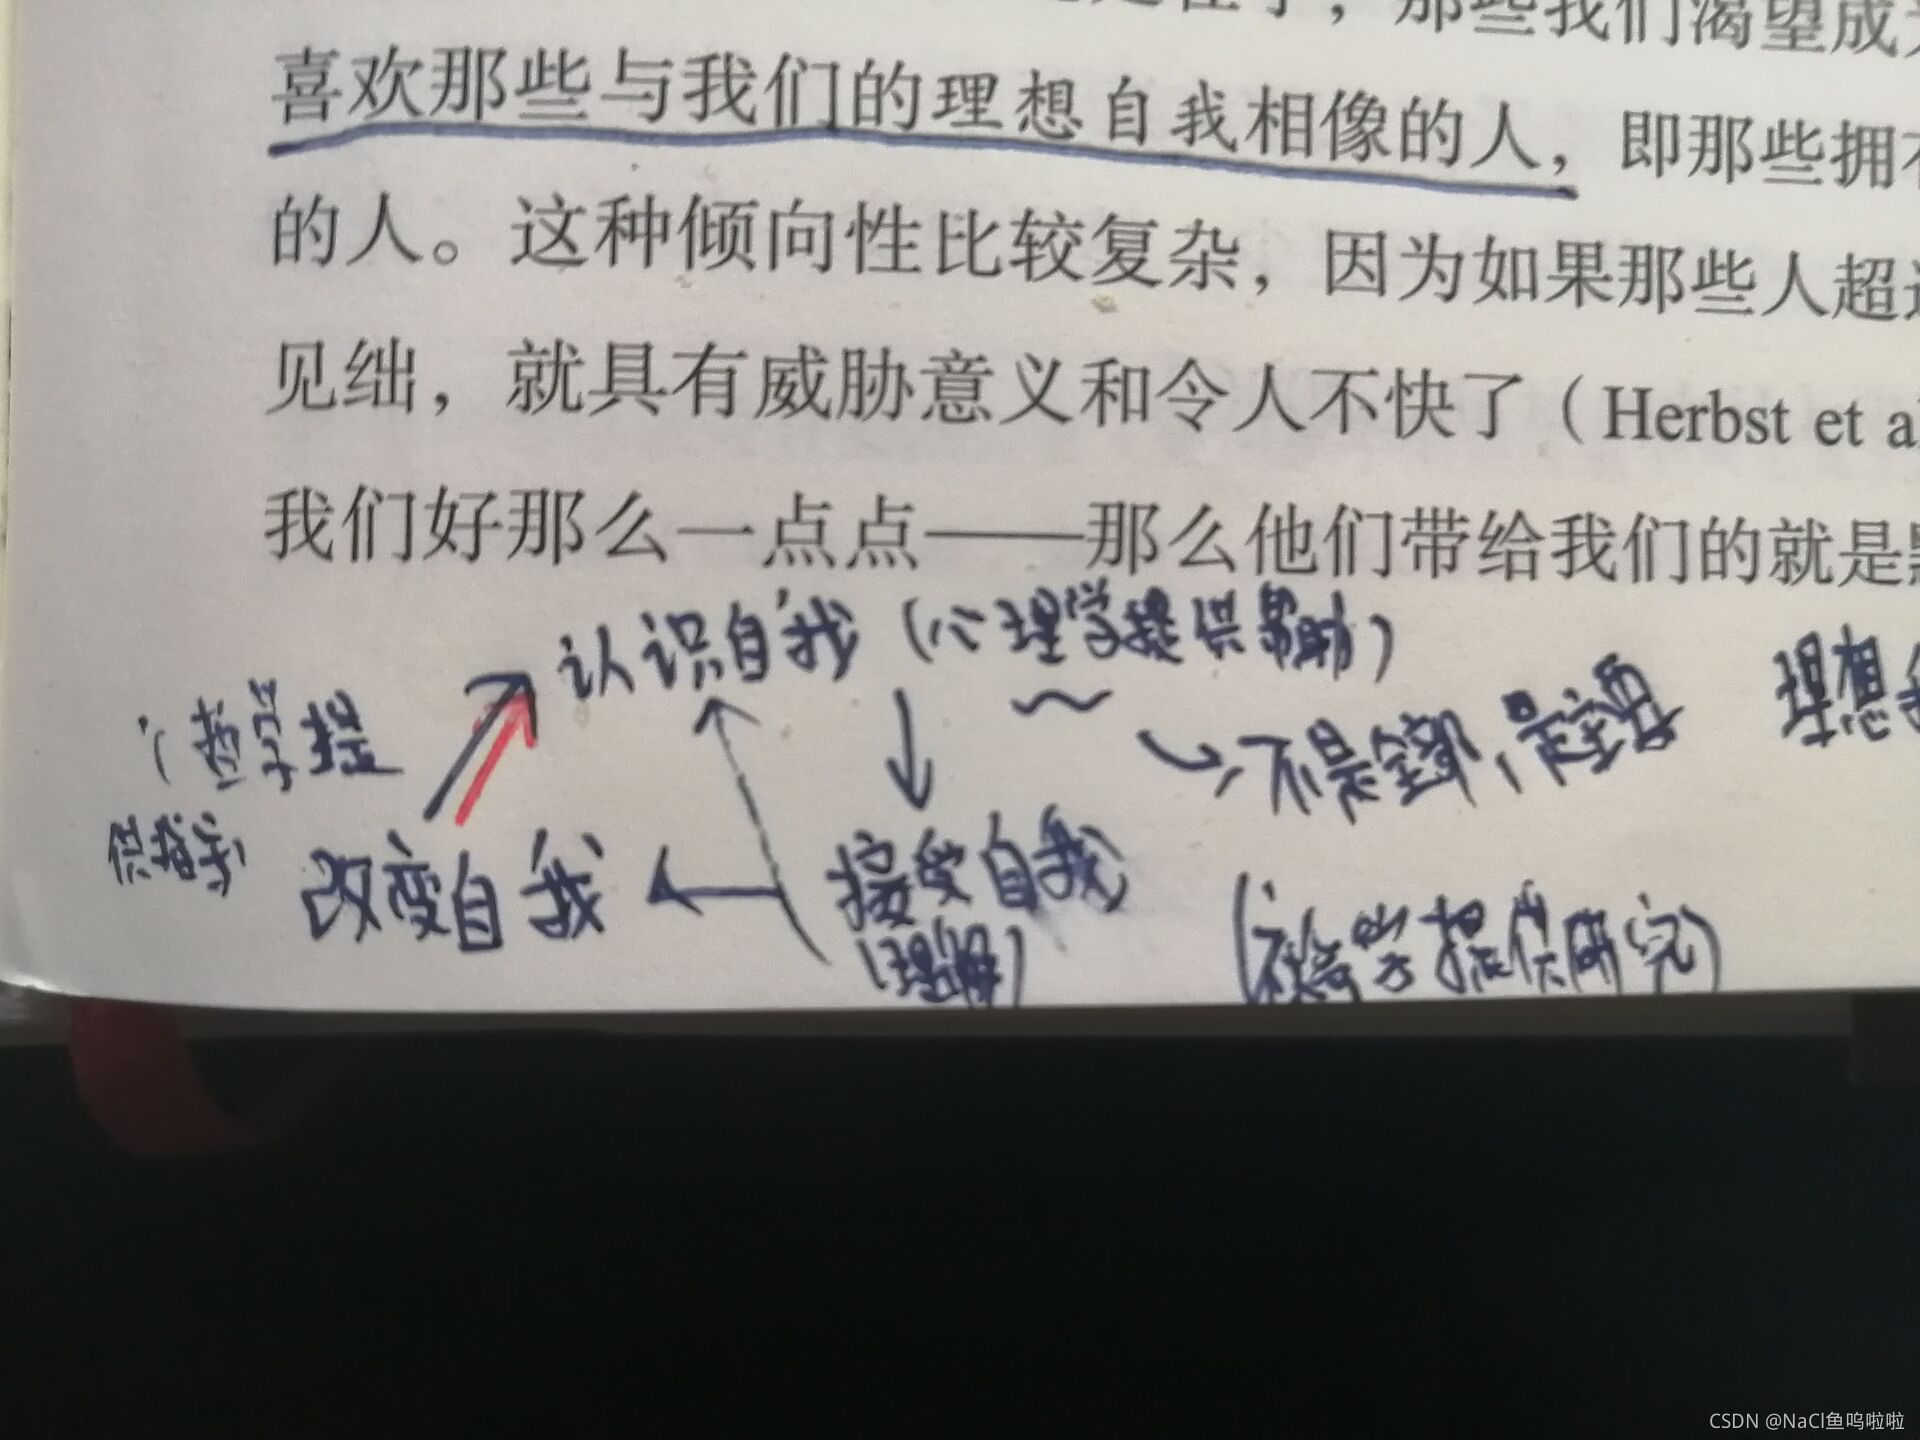 那些我们渴望成
喜欢那些与我们的理想自我相像的人，即那些拥有
的人。这种倾向性比较复杂，因为如果那些人超过
见绌，就具有威胁意义和令人不快了（Herbst et al
我们好那么一点点——那么他们带给我们的就是
认识自我（心理学提供帮助）
（哲学提
供
不是全部，是主要
理想
改变自我
接受自我
（理解）
（社会学提供研究）
CSDN @NaCl鱼呜啦啦